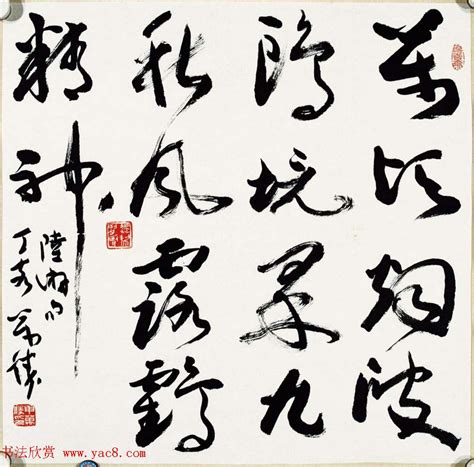 萬頃烟波
鷗境界九
秋風露鶴
精神
陸游句
丁亥
书法欣赏 www.yac8.com